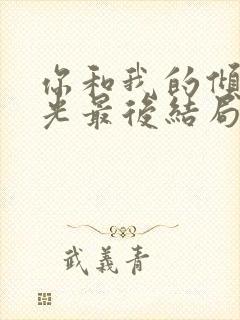 你和我的傾
光最後結局
武義青